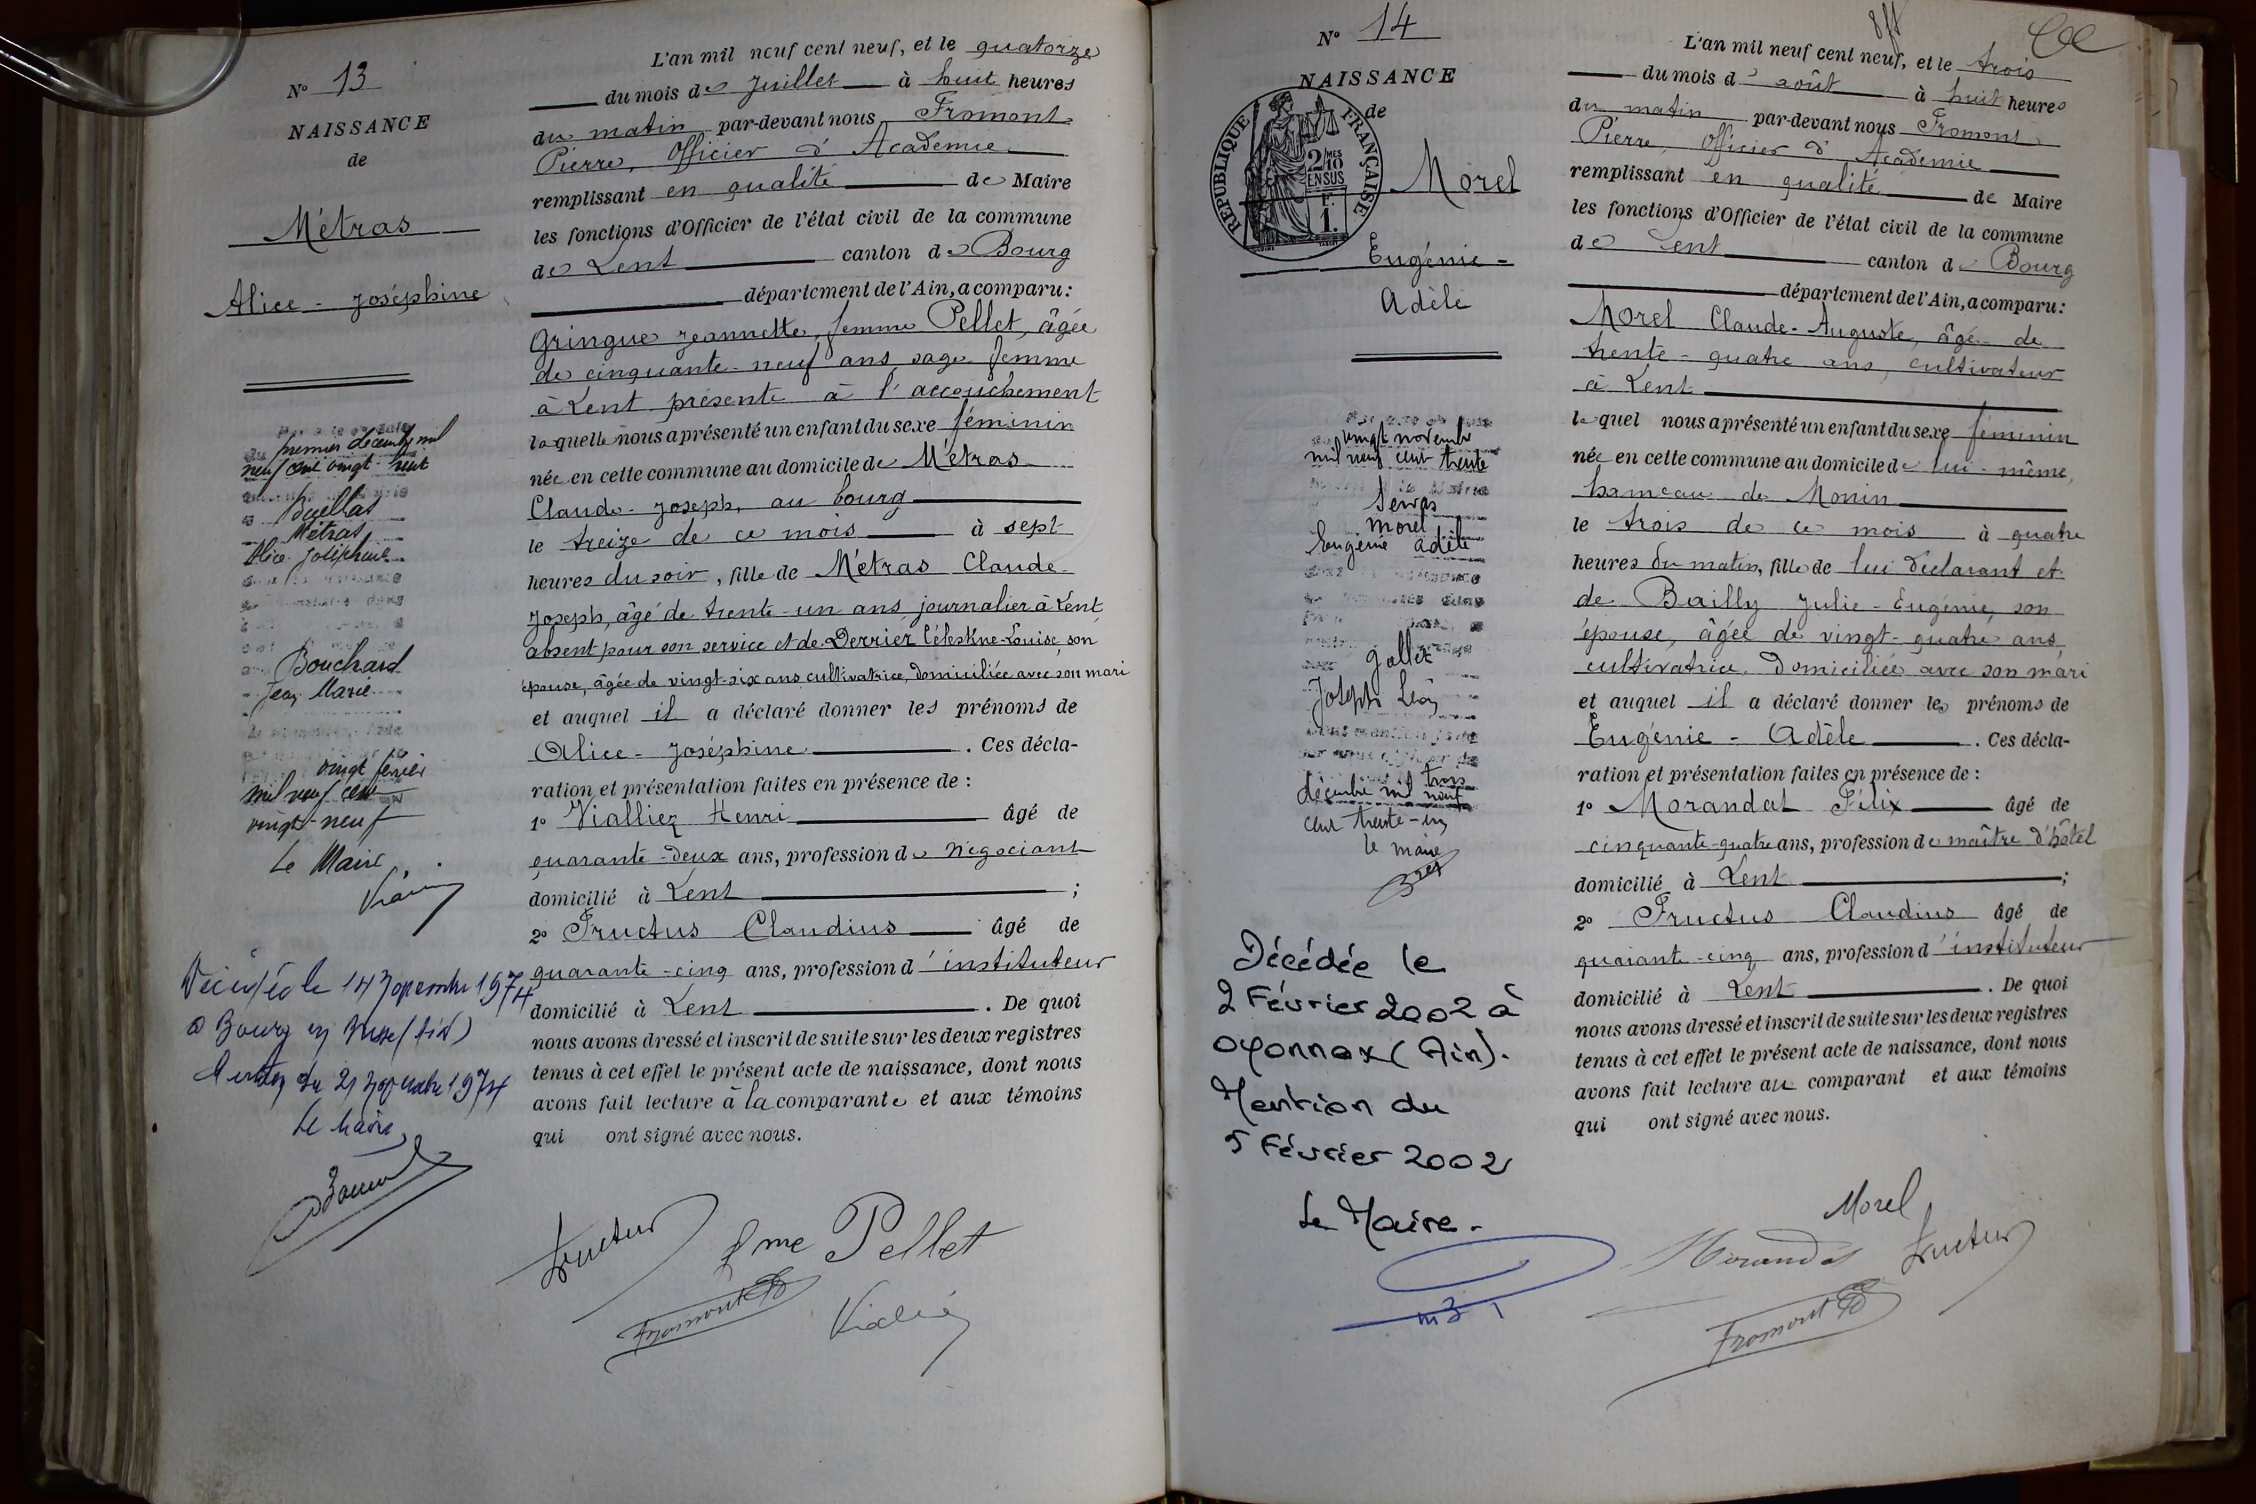 N° 13
NAISSANCE
de
Métras
Alice - Joséphine
premier décembre mil
neuf cent vingt huit
Métras
Alice Joséphine
Bouchard
Jean Marie
vingt février
mil neuf cent
vingt-neuf
Le Maire
L'an mil neuf cent neuf, et le quatorze
du mois de Juillet à huit heures
du matin par-devant nous Fromont
Pierre, Officier d'Académie
remplissant en qualité de Maire
les fonctions d'Officier de l'état civil de la commune
de Lent canton de Bourg
département de l'Ain, a comparu :
Gringue Jeannette, femme Pellet, âgée
de cinquante-neuf ans sage-femme
à Lent présente à l'accouchement
laquelle nous a présenté un enfant du sexe féminin
née en cette commune au domicile de Métras
Claude-Joseph, au bourg
le treize de ce mois à sept
heures du soir, fille de Métras Claude-
Joseph, âgé de trente-un ans journalier à Lent,
absent pour son service et de Derrier Célestine-Louise, son
épouse, âgée de vingt-six ans cultivatrice, domiciliée avec son mari
et auquel il a déclaré donner les prénoms de
Alice - Joséphine. Ces décla-
ration et présentation faites en présence de :
1° Viallier Henri âgé de
quarante-deux ans, profession de négociant
domicilié à Lent ;
2° Fructus Claudius âgé de
quarante-cinq ans, profession d'instituteur
domicilié à Lent. De quoi
nous avons dressé et inscrit de suite sur les deux registres
tenus à cet effet le présent acte de naissance, dont nous
avons fait lecture à la comparante et aux témoins
qui ont signé avec nous.
Décédée le 14 novembre 1974
à Bourg en Bresse (Ain)
Mention du 21 novembre 1974
Le Maire,
Fructus
Fme Pellet
Fromont
N° 14
NAISSANCE
de
RÉPUBLIQUE FRANÇAISE
2/10
EN SUS
F.
1.
Morel
Eugénie -
Adèle
vingt novembre
mil neuf cent trente
Servas
Morel
Eugénie Adèle
Joseph Léon
trois
décembre mil neuf
cent trente-un
le maire
Décédée le
2 Février 2002 à
Oyonnax (Ain).
Mention du
5 Février 2002
Le Maire.
L'an mil neuf cent neuf, et le trois
du mois d'août à huit heures
du matin par-devant nous Fromont
Pierre, Officier d'Académie
remplissant en qualité de Maire
les fonctions d'Officier de l'état civil de la commune
de Lent canton de Bourg
département de l'Ain, a comparu :
Morel Claude-Auguste, âgé de
trente-quatre ans, cultivateur
à Lent
lequel nous a présenté un enfant du sexe féminin
née en cette commune au domicile de lui-même,
hameau de Monin
le trois de ce mois à quatre
heures du matin, fille de lui déclarant et
de Bailly Julie-Eugénie, son
épouse, âgée de vingt-quatre ans,
cultivatrice domiciliée avec son mari
et auquel il a déclaré donner les prénoms de
Eugénie - Adèle. Ces décla-
ration et présentation faites en présence de :
1° Morandat Félix âgé de
cinquante-quatre ans, profession de maître d'hôtel
domicilié à Lent ;
2° Fructus Claudius âgé de
quarante-cinq ans, profession d'instituteur
domicilié à Lent. De quoi
nous avons dressé et inscrit de suite sur les deux registres
tenus à cet effet le présent acte de naissance, dont nous
avons fait lecture au comparant et aux témoins
qui ont signé avec nous.
Morel
Morandat
Fructus
Fromont